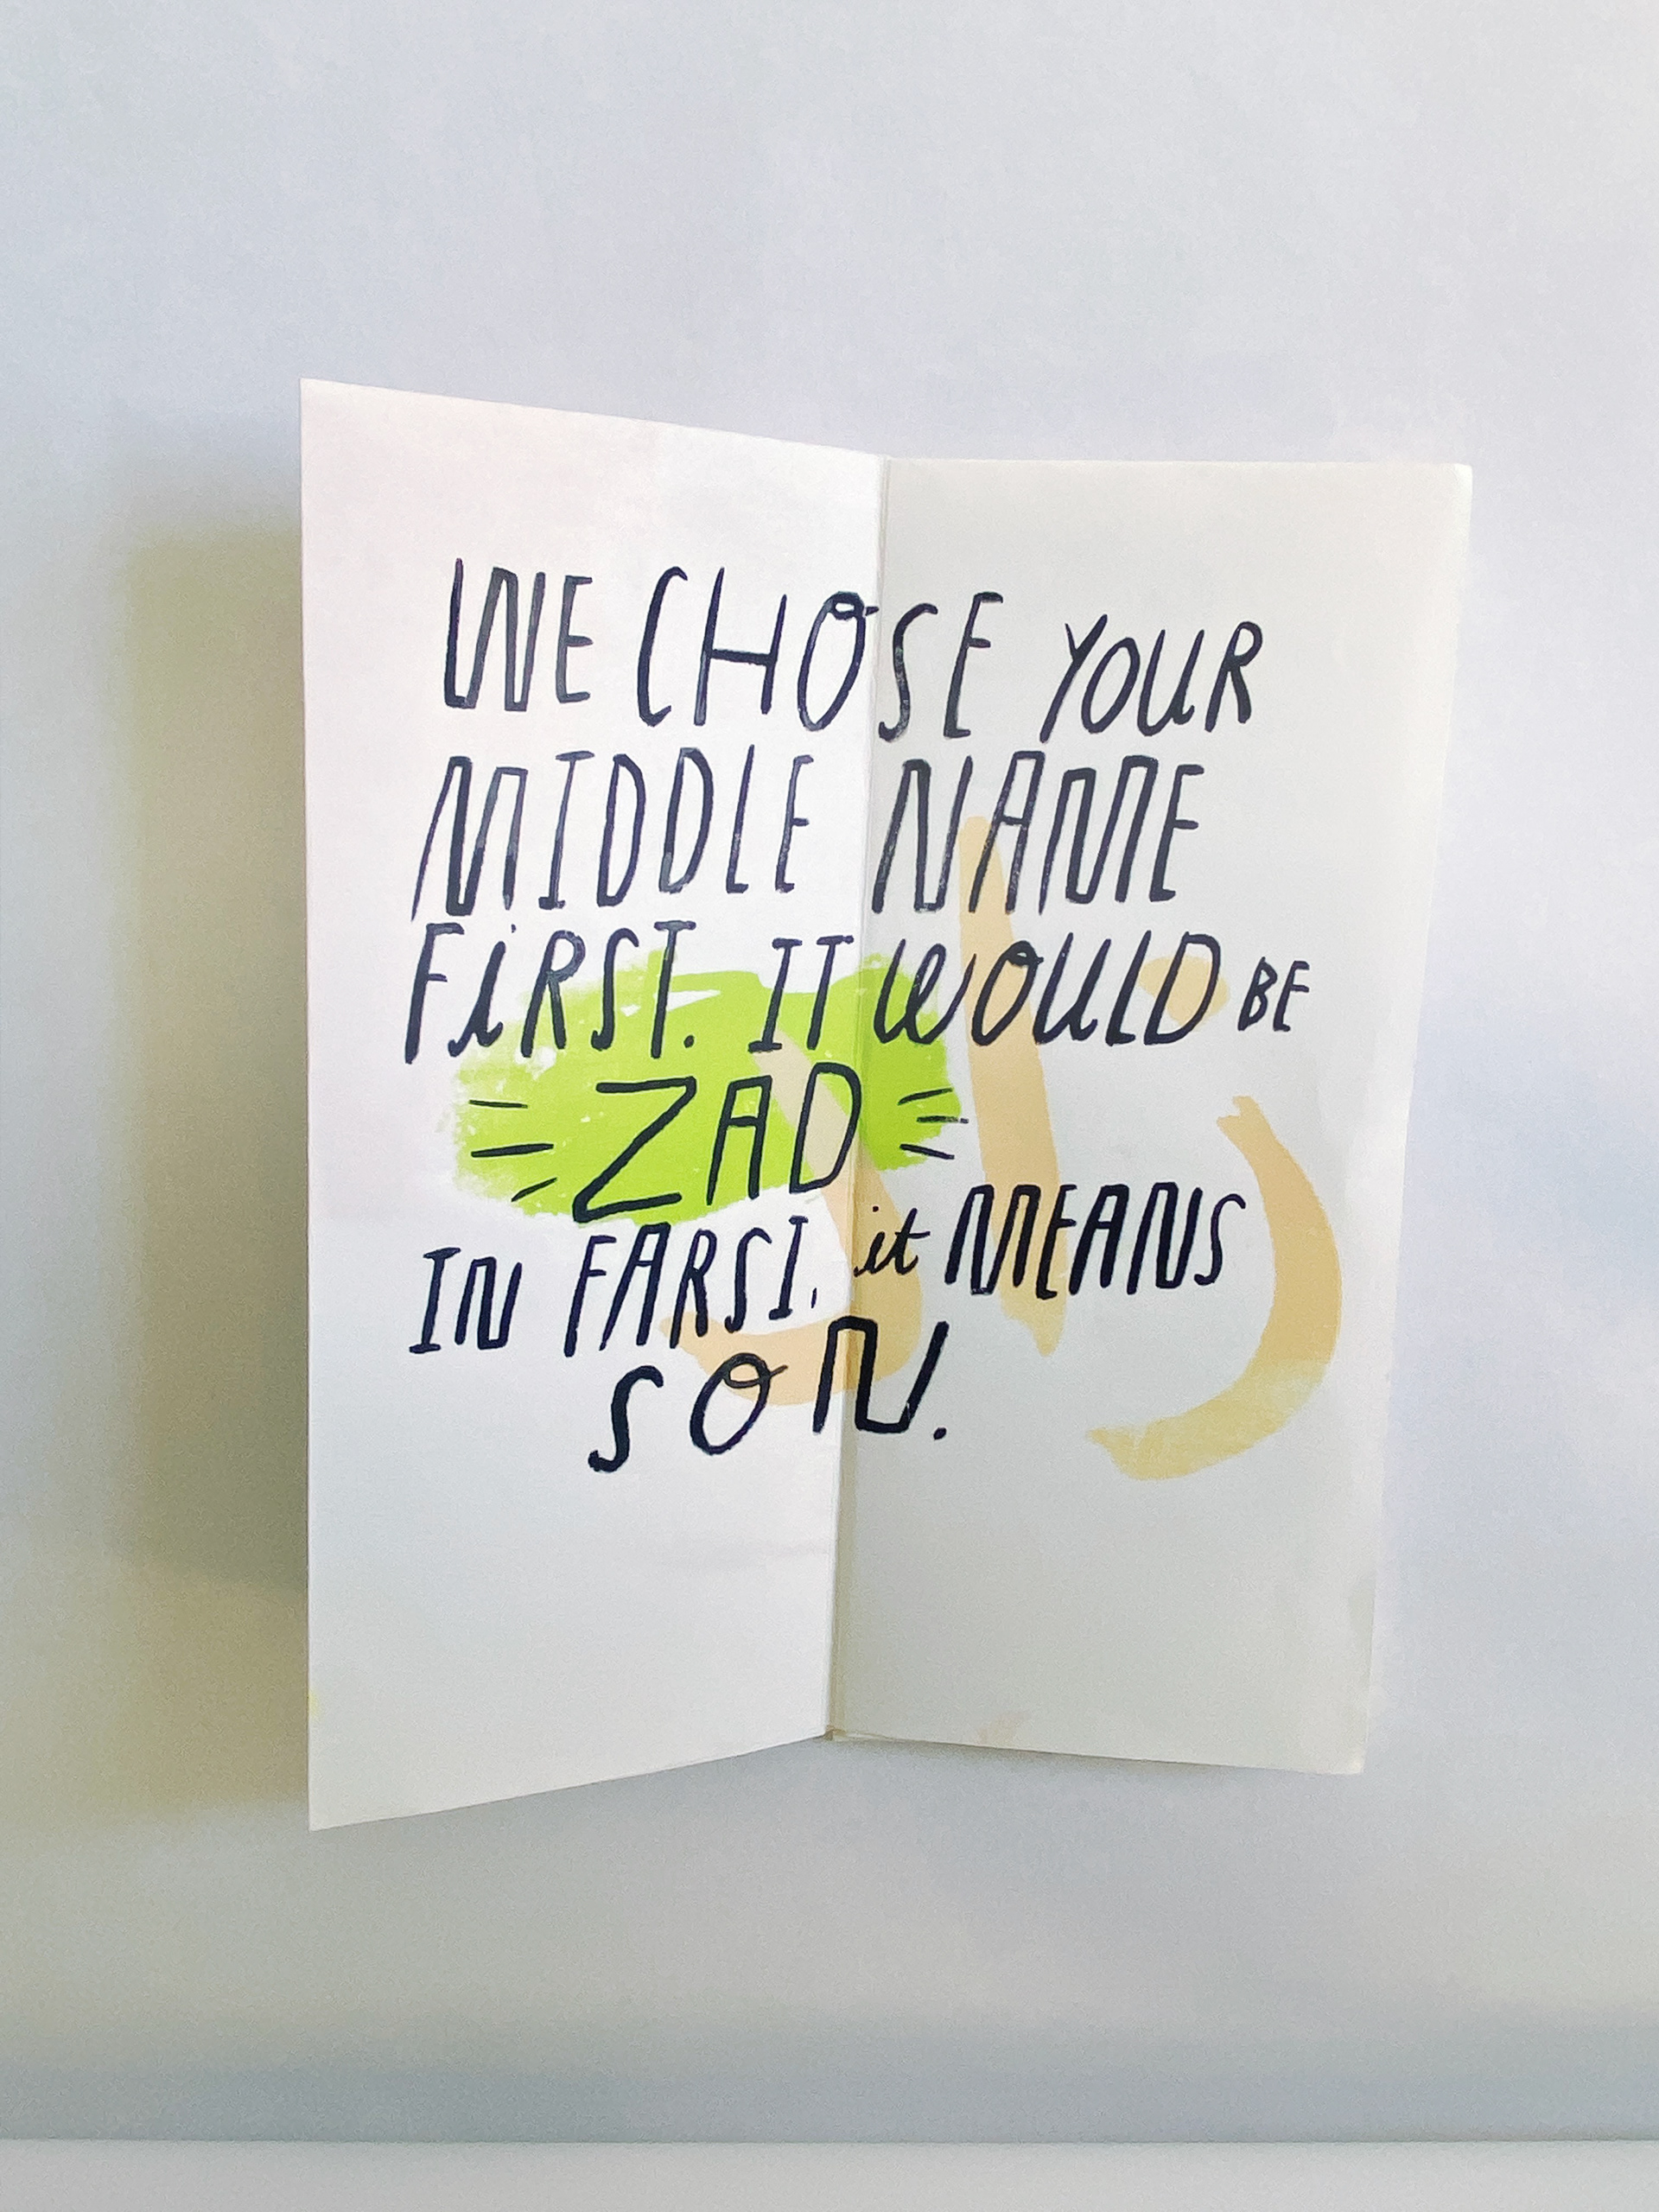 WE CHOSE YOUR
MIDDLE NAME
FIRST. IT WOULD BE
ZAD
IN FARSI, it MEANS
SON.
زاد